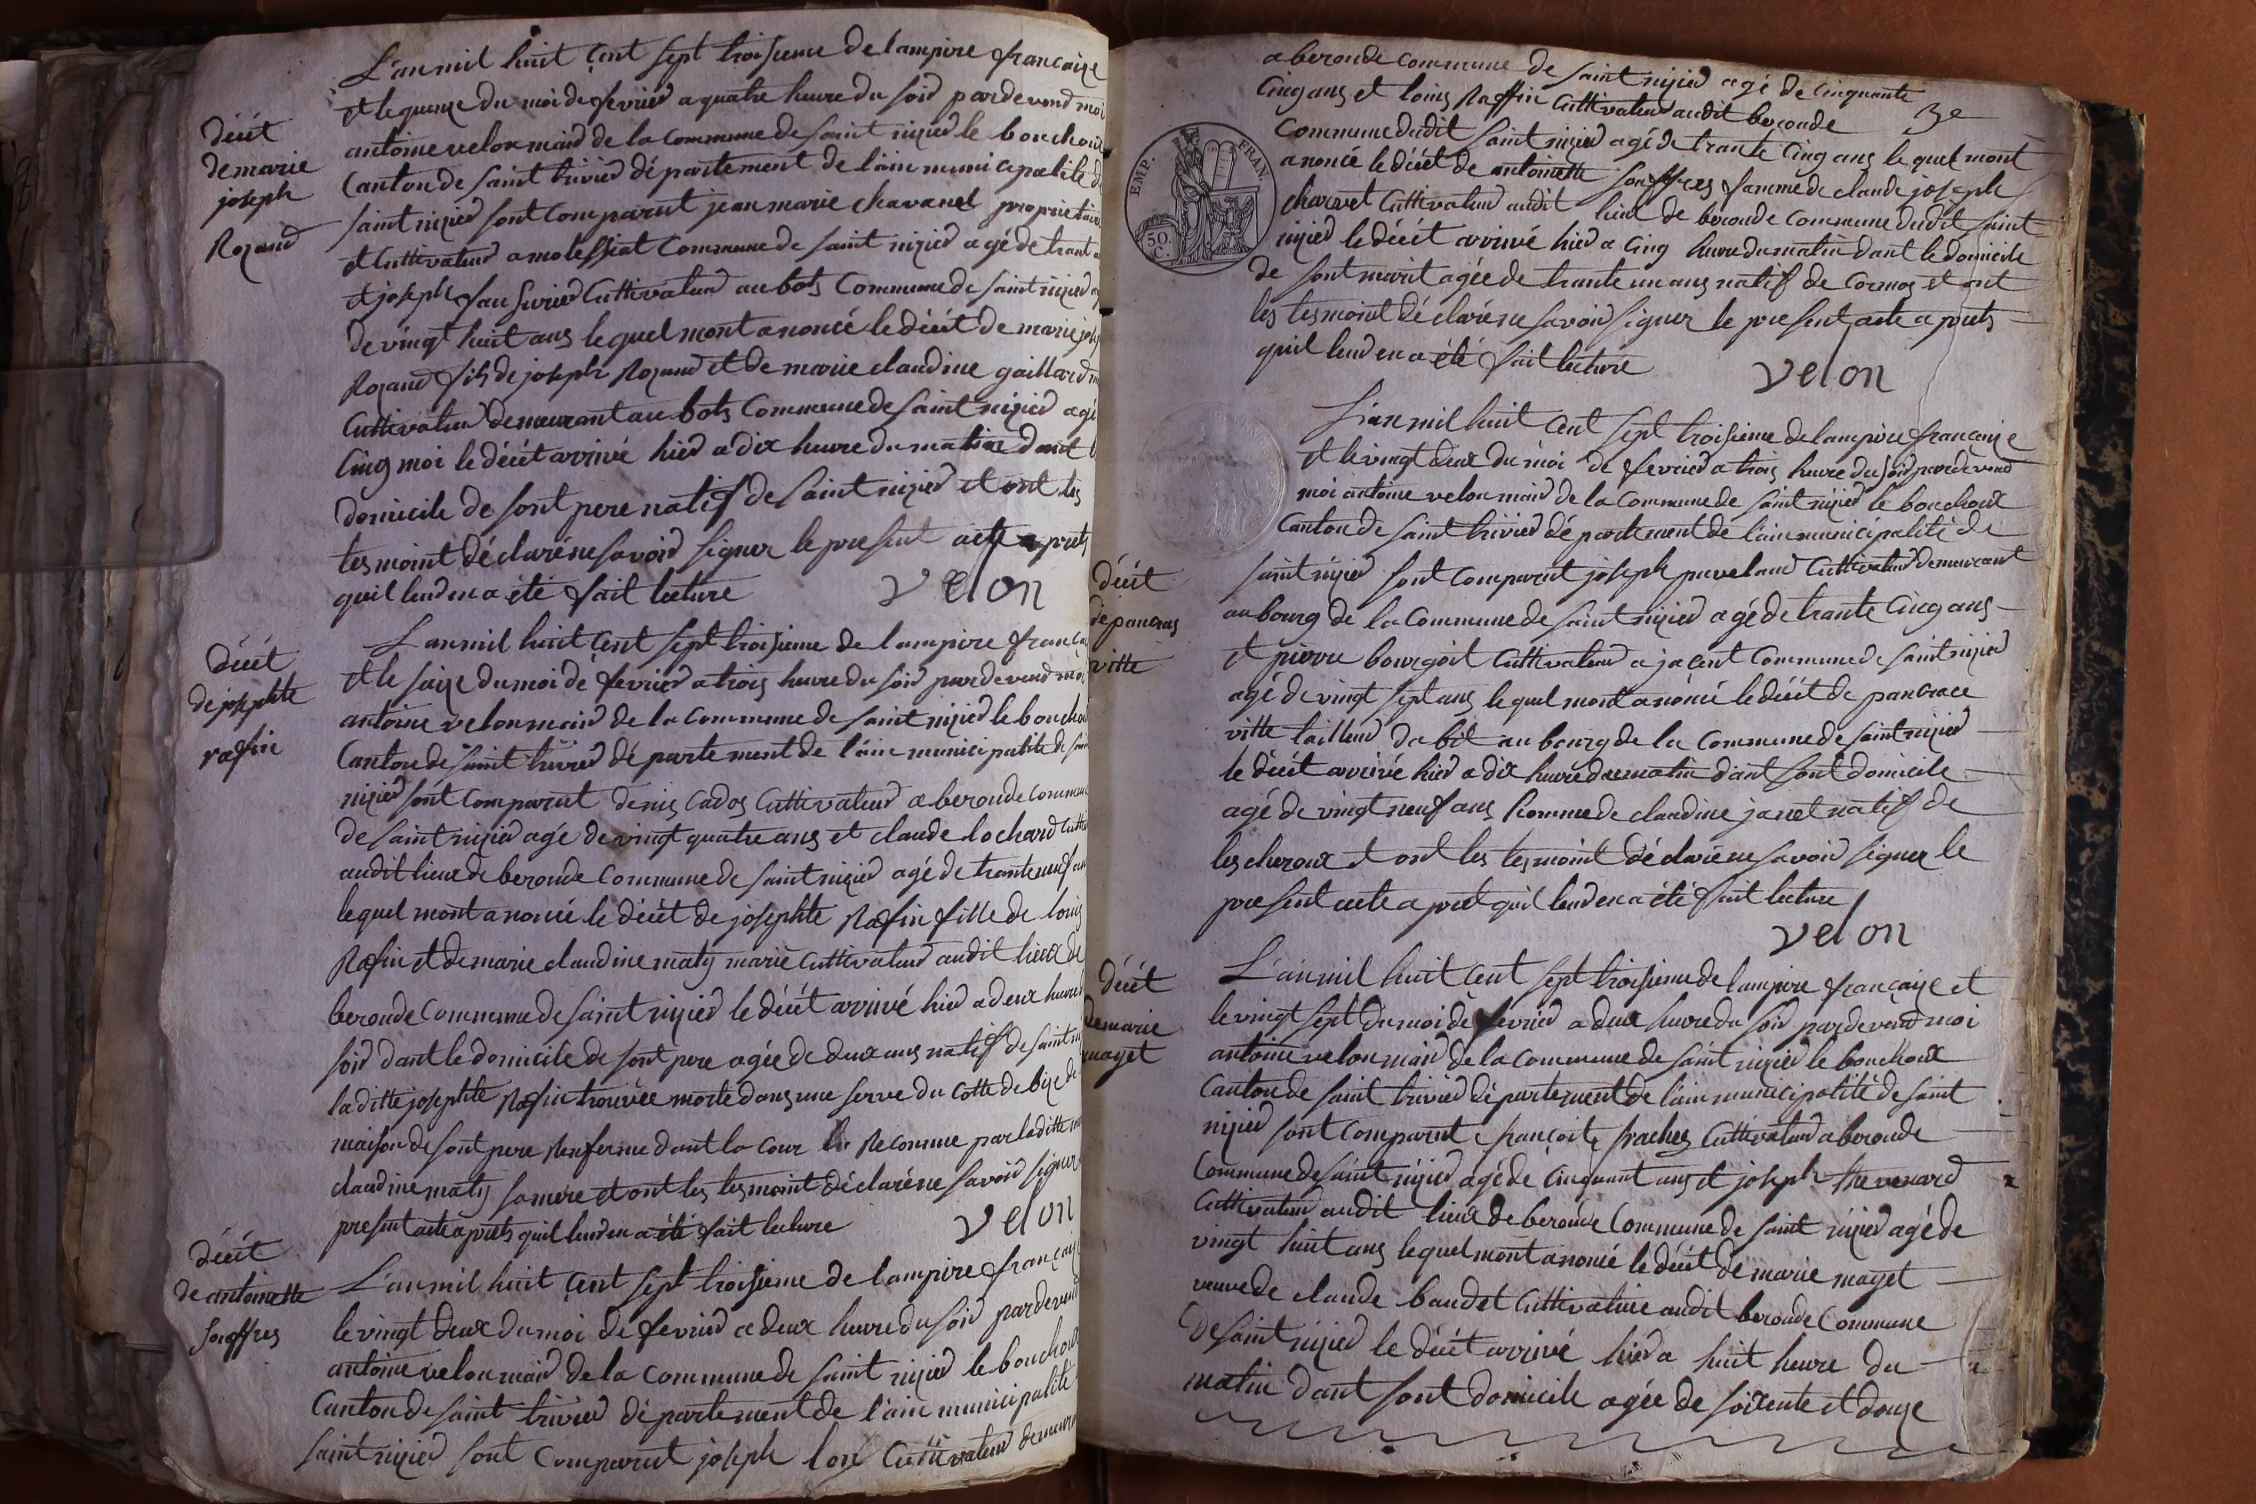 L'an mil huit cent sept troisieme de lampire francaize
et le quenze du moi de fevrier a quatre heure du soir pardevend moi
antoine velon maire de la commune de saint nizier le bouchou
canton de saint trivier département de l'ain municipalité d
saint nizier sont comparut jean marie chavanel proprietaire
et cultivateur a molessiat commune de saint nizier agé de trant
et joseph cultivateur au bots commune de saint nizier
de vingt huit ans le quel mont anoncé le décét de marie jos
Rozand fils de joseph Rozand et de marie claudine gaillard
cultivateur demeurant au bots commune de saint nizier agé
cinq moi le décét arrivé hier a dix heure du matin dant l
domicile de sont pere natif de saint nizier et ont les
tesmoint déclaré ne savoir signer le present acte aprets
quil leur en a été fait lecture
velon
décét
de marie
joseph
Rozand
L'an mil huit cent sept troisieme de lampire franca
et le saize du moi de fevrier a trois heure du soir pardevend moi
antoine velon maire de la commune de saint nizier le boucho
canton de saint trivier département de l'ain municipalité de sain
nizier sont comparut denis cados cultivateur a beronde commune
de saint nizier agé de vingt quatre ans et claude lochard
audit lieux de beronde commune de saint nizier agé de trante neuf an
lequel mont anoncé le décét de josephte Rafin fille de louis
Rafin et de marie claudine maty marié cultivateur audit lieux de
beronde commune de saint nizier le décét arrivé hier a deux heure
soir dant le domicile de sont pere agée de deux ans natif de saint ni
la ditte josephte Rafin trouvée morte dans une serve du cotte de bize de
maison de sont pere Renfermé dant la cour Reconnue par la ditte
claudine maty sa mere et ont les tesmoint déclaré ne savoir signer
present acte aprets quil leur en a été fait lecture
velon
décét
de josephte
rafin
L'an mil huit cent sept troisieme de lampire francaize
le vingt deux du moi de fevrier a deux heure du soir pardevend
antoine velon maire de la commune de saint nizier le bouchou
canton de saint trivier département de l'ain municipalité
saint nizier sont comparut joseph cultivateur demeurant
décét
de antoinette
souffres
a beronde commune de saint nizier agé de cinquante
3e
cinq ans et louis Raffin cultivateur audit beronde
commune dudit saint nizier agé de trante cinq ans le quel mont
anoncé le décét de antoinette souffres famme de claude joseph
charvet cultivateur audit lieux de beronde commune dudit saint
nizier le décét arrivé hier a cinq heure du matin dant le domicile
de sont marit agée de trante un ans natif de cormos et ont
les tesmoint déclaré ne savoir signer le present acte aprets
quil leur en a été fait lecture
velon
EMP. FRAN.
50 C.
L'an mil huit cent sept troisieme de lampire francaize
et le vingt deux du moi de fevrier a trois heure du soir pardevend
moi antoine velon maire de la commune de saint nizier le bouchoux
canton de saint trivier département de l'ain municipalité de
saint nizier sont comparut joseph cultivateur demeurant
au bourg de la commune de saint nizier agé de trante cinq ans
et pierre bourgoit cultivateur a jacent commune de saint nizier
agé de vingt sept ans le quel mont anoncé le décét de pancrace
vitte tailleur dabit au bourg de la commune de saint nizier
le décét arrivé hier a dix heure du matin dant sont domicile
agé de vingt neuf ans homme de claudine janet natif de
les cheroux et ont les tesmoint déclaré ne savoir signer le
present acte apret quil leur en a été fait lecture
velon
décét
de pancras
vitte
L'an mil huit cent sept troisieme de lampire francaize et
le vingt sept du moi de fevrier a deux heure du soir pardevend moi
antoine velon maire de la commune de saint nizier le bouchoux
canton de saint trivier département de l'ain municipalité de saint
nizier sont comparut francoit cultivateur a beronde
commune de saint nizier agé de cinquant ans et joseph thevenard
cultivateur audit lieux de beronde commune de saint nizier agé de
vingt huit ans lequel mont anoncé le décét de marie mayet
veuve de claude baudet cultivatrice audit beronde commune
de saint nizier le décét arrivé hier a huit heure du
matin dant sont domicile agée de soixente et douze
décét
de marie
mayet